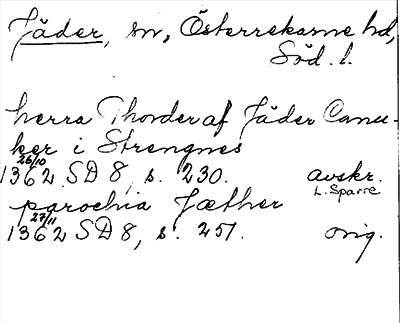 Jäder, sn, Österrekarne hd,
Söd. l.
herra Thorder af Jäder Canu-
ker i Strengnes
26/10
1362 SD 8, s. 230. avskr.
L. Sparre
parochia Jæther
27/11
1362 SD 8, s. 251. orig.